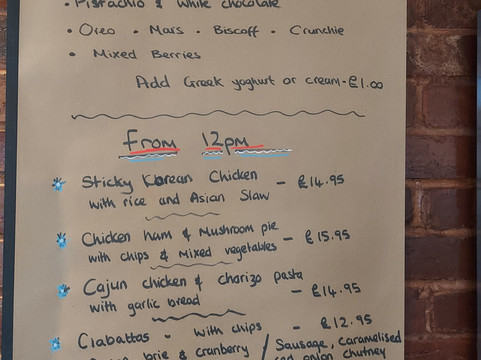 • Pistachio & white chocolate
• Oreo • Mars • Biscoff • Crunchie
• Mixed Berries
Add Greek yoghurt or cream - £1.00
From 12pm
Sticky Korean Chicken - £14.95
with rice and Asian Slaw
Chicken ham & Mushroom pie - £15.95
with chips & Mixed vegetables
Cajun chicken & chorizo pasta - £14.95
with garlic bread
Ciabattas - with chips - £12.95
brie & cranberry / Sausage, caramelised
red onion chutney